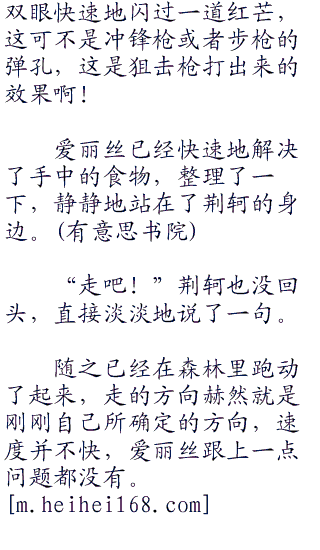 双眼快速地闪过一道红芒，
这可不是冲锋枪或者步枪的
弹孔，这是狙击枪打出来的
效果啊！
爱丽丝已经快速地解决
了手中的食物，整理了一
下，静静地站在了荆轲的身
边。(有意思书院)
“走吧！”荆轲也没回
头，直接淡淡地说了一句。
随之已经在森林里跑动
了起来，走的方向赫然就是
刚刚自己所确定的方向，速
度并不快，爱丽丝跟上一点
问题都没有。
[m.heihei168.com]